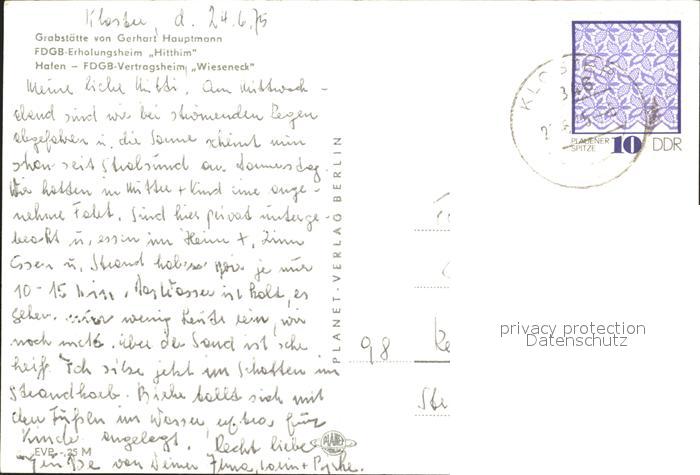 Kloster, d. 24.6.75
Grabstätte von Gerhart Hauptmann
FDGB-Erholungsheim „Hitthim"
Hafen – FDGB-Vertragsheim „Wieseneck"
Meine liebe Mutti, Am Mittwoch-
abend sind wir bei strömenden Regen
abgefahren u. die Sonne scheint nun
schon seit Stralsund am Donnerstag.
Wir hatten in Mutter + Kind eine ange-
nehme Fahrt. Sind hier privat unterge-
bracht u. essen im Heim
Essen u. Strand haben wir je nur
10-15 Min. Das Wasser ist kalt, es
gehen wenig Leute rein, wir
noch nicht. Aber der Sand ist sehr
heiß. Ich sitze jetzt im Schatten im
Strandkorb. tollt sich mit
den Füßen im Wasser,
Kinder angelegt. Recht liebe
Grüße von Deiner
PLANET-VERLAG BERLIN
EVP -,25 M
PLANET
KLOSTER
PLAUENER
SPITZE
10 DDR
98
privacy protection
Datenschutz